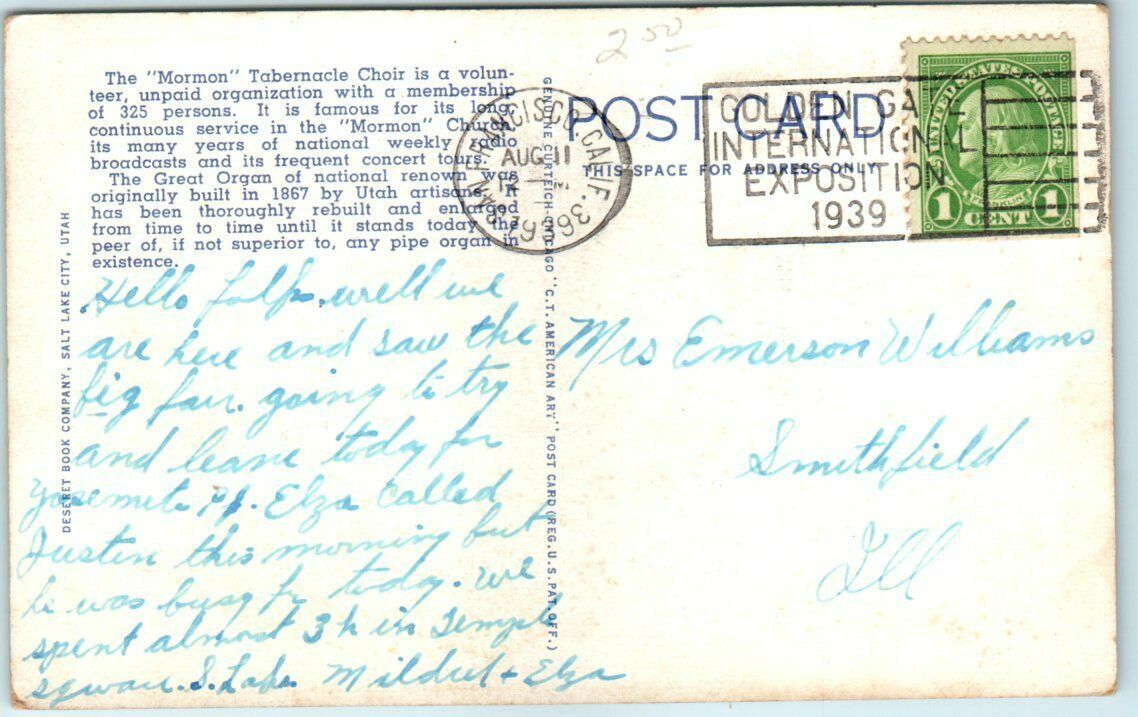 2 50
The "Mormon" Tabernacle Choir is a volun-
teer, unpaid organization with a membership
of 325 persons. It is famous for its long,
continuous service in the "Mormon" Church,
its many years of national weekly radio
broadcasts and its frequent concert tours.
The Great Organ of national renown was
originally built in 1867 by Utah artisans. It
has been thoroughly rebuilt and enlarged
from time to time until it stands today the
peer of, if not superior to, any pipe organ in
existence.
DESERET BOOK COMPANY, SALT LAKE CITY, UTAH
Hello folks. well we
are here and saw the
big fair. going to try
and leave today for
Yosemite Elza called
Justin this morning but
he was busy today. we
spent almost 3 h in Temple
sqware. S. Lake. Mildred + Elza
GENUINE CURTEICH-CHICAGO "C.T. AMERICAN ART" POST CARD (REG. U.S. PAT. OFF.)
POST CARD
THIS SPACE FOR ADDRESS ONLY
SAN FRANCISCO, CALIF.
AUG 11
GOLDEN GATE
INTERNATIONAL
EXPOSITION
1939
UNITED STATES POSTAGE
FRANKLIN
1 CENT 1
Mrs Emerson Williams
Smithfield
Ill